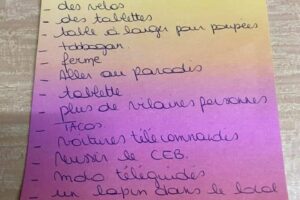 - des vélos
- des tablettes
- table à langer pour poupées
- toboggan
- ferme
- Aller au paradis
- tablette
- plus de vilaines personnes
- TACOS
- voitures télécommandés
- Réussir le CEB.
- moto téléguidés
- un lapin dans le local